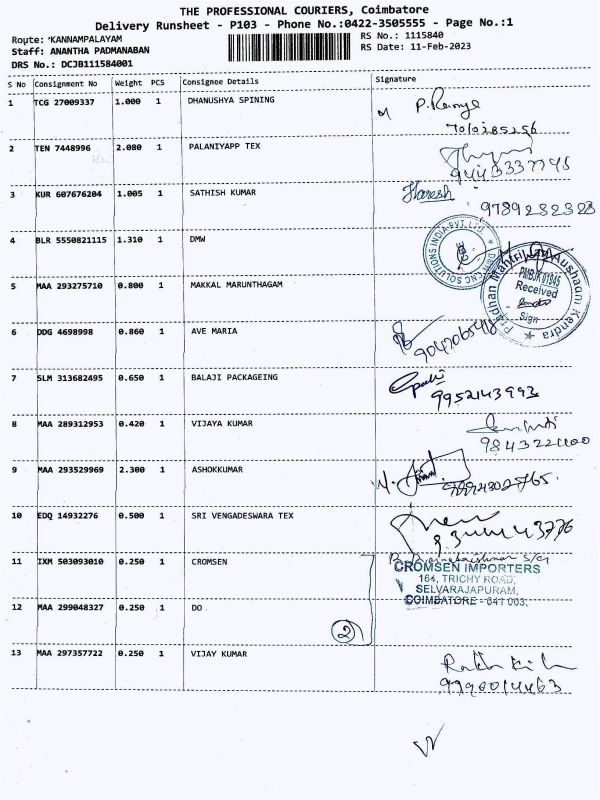 THE PROFESSIONAL COURIERS, Coimbatore
Delivery Runsheet - P103 - Phone No.:0422-3505555 - Page No.:1
Route: KANNAMPALAYAM
RS No.: 1115840
Staff: ANANTHA PADMANABAN
RS Date: 11-Feb-2023
DRS No.: DCJB111584001
S No Consignment No Weight PCS Consignee Details Signature
1 TCG 27009337 1.000 1 DHANUSHYA SPINING
2 TEN 7448996 2.080 1 PALANIYAPP TEX
3 KUR 607676204 1.005 1 SATHISH KUMAR Haresh
9789232323
4 BLR 5550821115 1.310 1 DMW
5 MAA 293275710 0.800 1 MAKKAL MARUNTHAGAM
Received
Sign
6 DDG 4698998 0.860 1 AVE MARIA
7 SLM 313682495 0.650 1 BALAJI PACKAGEING
9952143993
8 MAA 289312953 0.420 1 VIJAYA KUMAR
9 MAA 293529969 2.300 1 ASHOKKUMAR
10 EDQ 14932276 0.500 1 SRI VENGADESWARA TEX
11 IXM 503093010 0.250 1 CROMSEN
CROMSEN IMPORTERS
164, TRICHY ROAD,
SELVARAJAPURAM,
COIMBATORE - 641 003.
12 MAA 299048327 0.250 1 DO
2
13 MAA 297357722 0.250 1 VIJAY KUMAR